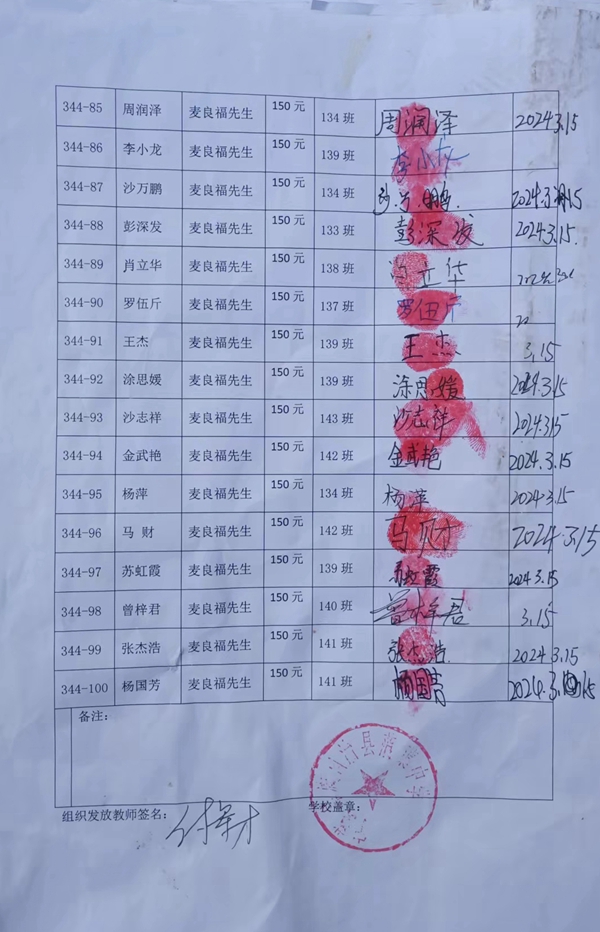 344-85 周润泽 麦良福先生 150 元 134 班 周润泽 2024.3.15
344-86 李小龙 麦良福先生 150 元 139 班 李小龙
344-87 沙万鹏 麦良福先生 150 元 134 班 沙万鹏 2024.3.15
344-88 彭深发 麦良福先生 150 元 133 班 彭深发 2024.3.15.
344-89 肖立华 麦良福先生 150 元 138 班 肖立华
344-90 罗伍斤 麦良福先生 150 元 137 班 罗伍斤
344-91 王杰 麦良福先生 150 元 139 班 王杰 3.15
344-92 涂思媛 麦良福先生 150 元 139 班 涂思媛 2024.3.15
344-93 沙志祥 麦良福先生 150 元 143 班 沙志祥 2024.3.15
344-94 金武艳 麦良福先生 150 元 142 班 金武艳 2024.3.15
344-95 杨萍 麦良福先生 150 元 134 班 杨萍 2024.3.15
344-96 马 财 麦良福先生 150 元 142 班 马财 2024.3.15
344-97 苏虹霞 麦良福先生 150 元 139 班 苏虹霞 2024.3.15
344-98 曾梓君 麦良福先生 150 元 140 班 曾梓君 3.15
344-99 张杰浩 麦良福先生 150 元 141 班 张杰浩 2024.3.15
344-100 杨国芳 麦良福先生 150 元 141 班 杨国芳 2024.3.15
备注：
组织发放教师签名： 学校盖章：